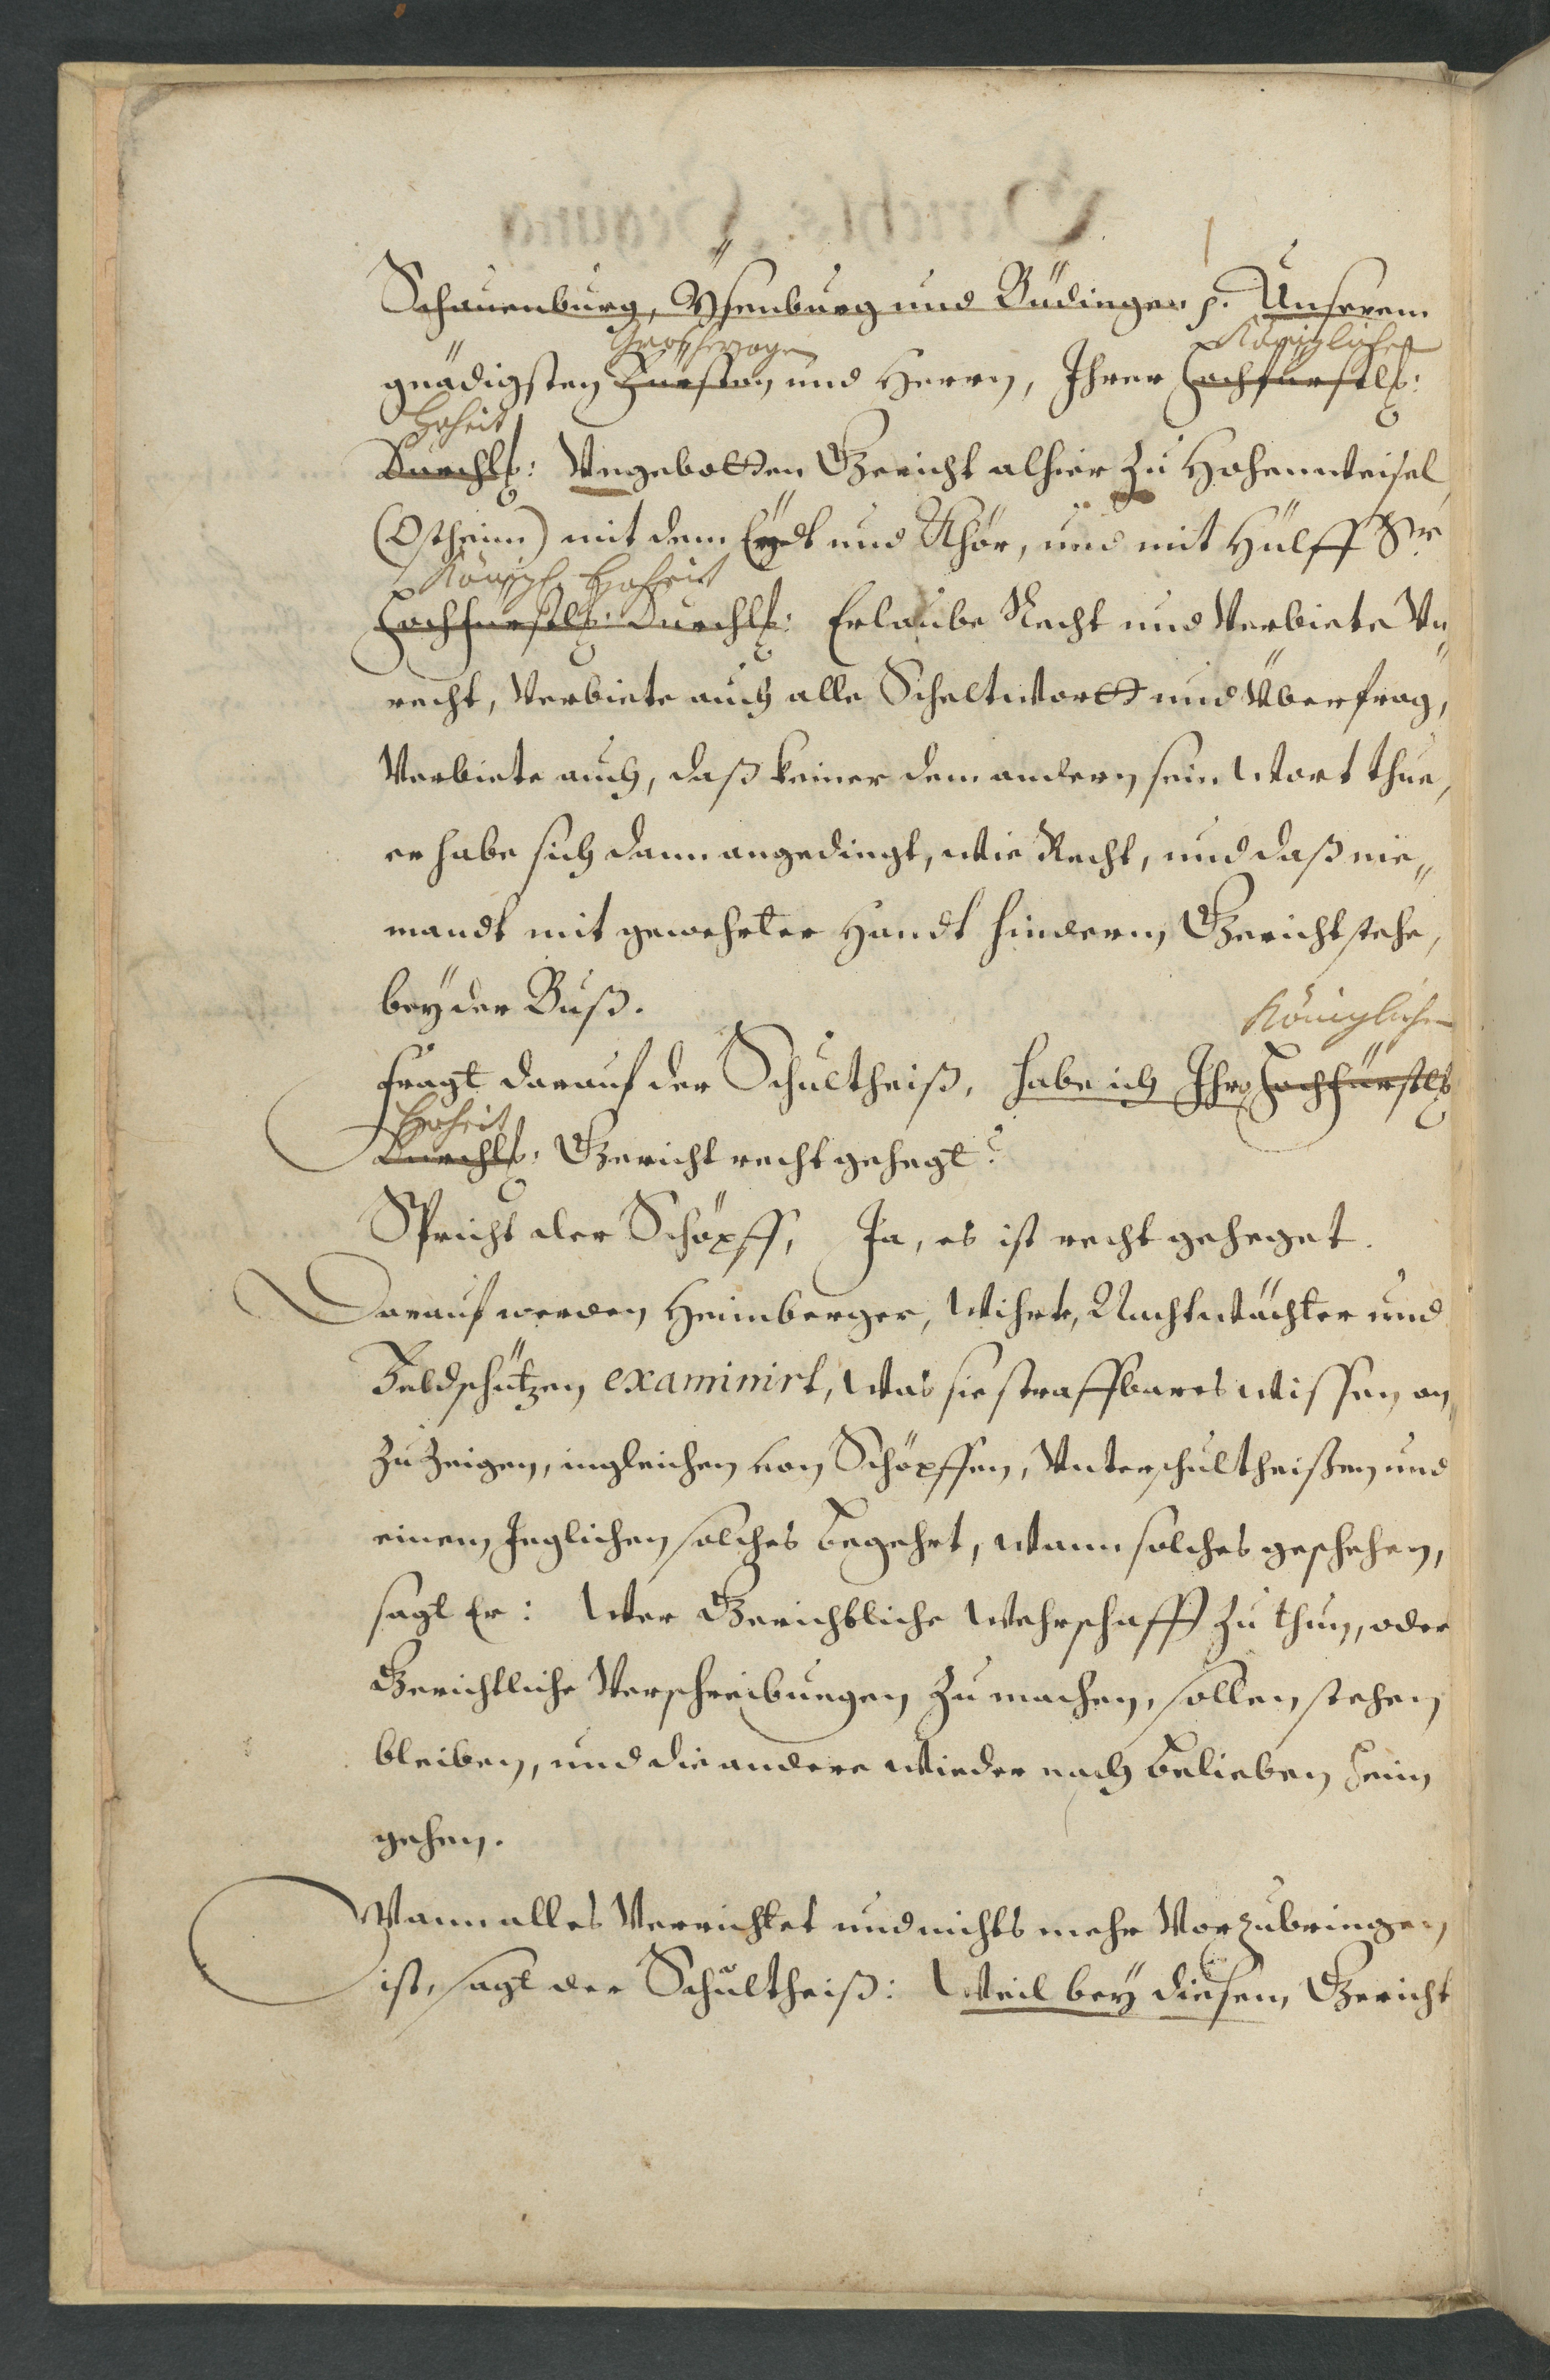 Schauenburg, Ysenburg und Büdingen p. Unserem
Großherzogen Königlichen
gnädigsten Fürsten und Herrn, Ihrer Hochfürstl:
Hoheit
Durchl: Ungebotten Gericht alhier zu Hohenweisel
(Ostheim) mit dem Eydt und Chör, und mit Hülff Sr
Königl. Hoheit
Hochfürstl: Durchl: Erlaube Recht und Verbiete Un"
recht, Verbiete auch alle Scheltwortt und Überfrag,
Verbiete auch, daß keiner dem andern sein Wort thue,
er habe sich dann angedingt, wie Recht, und daß nie"
mandt mit gewehrter Handt hinderm Gericht stehe,
bey der Buß.
Königlichen
fragt darauf der Schultheiß, habe ich Ihro Hochfürstl
Hoheit
Durchl: Gericht recht gehegt?
Spricht der Schöpff, Ja, es ist recht geheget.
Darauf werden Heimberger, Wihrt, Nachtwächter und
Feldschützen examinirt, was sie straffbares wissen an"
zuzeigen, ingleichen von Schöpffen, Unterschultheißen und
einem Jeglichen solches begehrt, wann solches geschehen,
sagt Er: Wer Gerichtliche Wehrschafft zu thun, oder
Gerichtliche Verschreibungen zu machen, sollen stehen
bleiben, und die andere wieder nach belieben heim
gehen.
Wann alles Verrichtet und nichts mehr Vorzubringen
ist, sagt der Schultheiß: Weil bey diesem Gericht